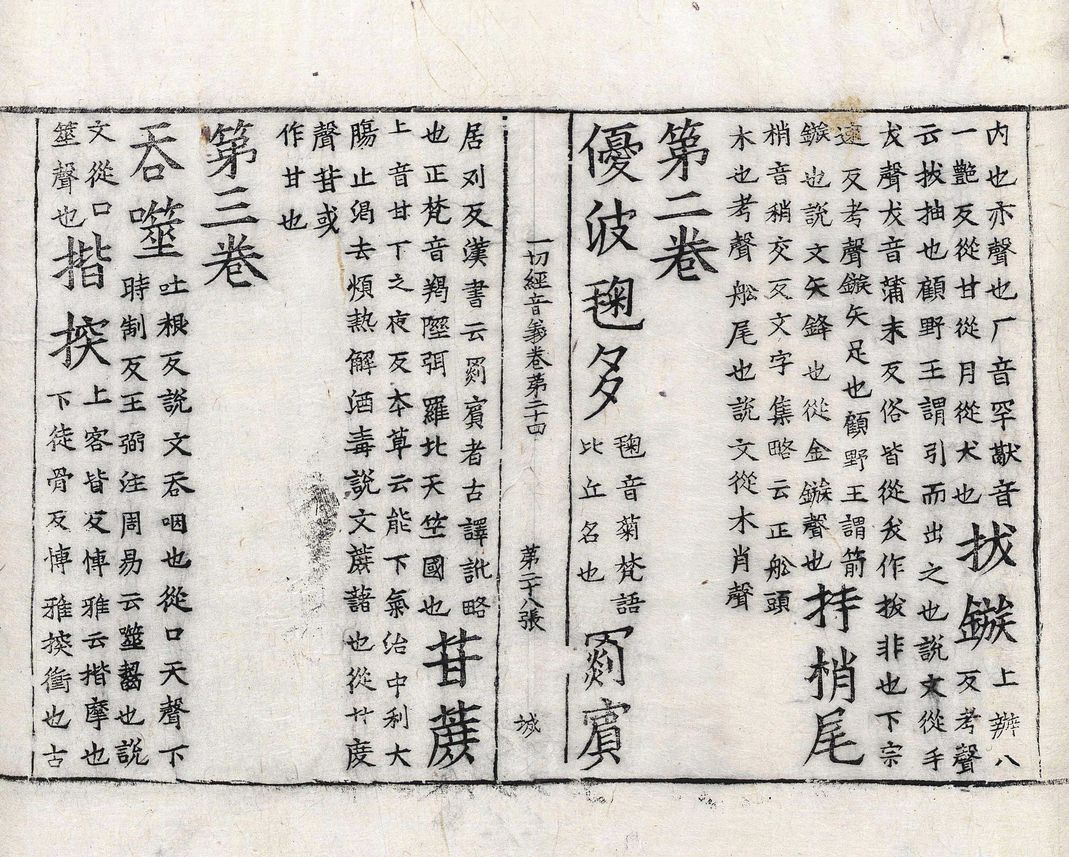 内也亦聲也厂音罕猒音
一艶反從甘從月從犬也
拔鏃
上辦八反考聲
云拔抽也顧野王謂引而出之也說文從手
犮聲犮音蒲末反俗皆從友作拔非也下宗
速反考聲鏃矢足也顧野王謂箭
鏃也說文矢鋒也從金鏃聲也
持梢尾
梢音稍交反文字集略云正舩頭
木也考聲舩尾也說文從木肖聲
第二卷
優波毱多
毱音菊梵語
比丘名也
罽賓
一切經音義卷第二十四
第二十八張
城
居刈反漢書云罽賓者古譯訛略
也正梵音羯隰弭羅北天竺國也
苷蔗
上音甘下之夜反本草云能下氣治中利大
膓止渴去煩熱解酒毒說文蔗藷也從廾度
聲苷或
作甘也
第三卷
吞噬
吐根反說文吞咽也從口天聲下
時制反王弼注周易云噬齧也說
文從口
筮聲也
揩揬
上客皆反博雅云揩摩也
下徒骨反博雅揬衝也古